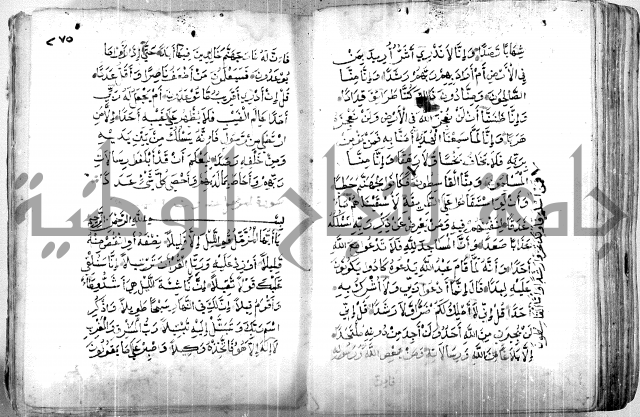 شهابا رصدا وانا لا ندري اشر اريد بمن
في الارض ام اراد بهم ربهم رشدا وانا منا
الصالحون ومنا دون ذلك كنا طرائق قددا
وانا ظننا ان لن نعجز الله في الارض ولن نعجزه
هربا وانا لما سمعنا الهدى امنا به فمن يؤمن
بربه فلا يخاف بخسا ولا رهقا وانا منا
المسلمون ومنا القاسطون فكانوا لجهنم حطبا
وان لو استقاموا على الطريقة لاسقيناهم ماء
غدقا لنفتنهم فيه ومن يعرض عن ذكر ربه يسلكه
عذابا صعدا وان المساجد لله فلا تدعوا مع الله
احدا وانه لما قام عبد الله يدعوه كادوا يكونون
عليه لبدا قال انما ادعوا ربي ولا اشرك به
احدا قل اني لا املك لكم ضرا ولا رشدا قل اني
لن يجيرني من الله احد ولن اجد من دونه ملتحدا
الا بلاغا من الله ورسالاته ومن يعص الله ورسوله
فان
فمن اسلم فاولئك تحروا رشدا واما القاسطون
٢٧٥
فان له نار جهنم خالدين فيها ابدا حتى اذا راوا ما
يوعدون فسيعلمون من اضعف ناصرا واقل عددا
قل ان ادري اقريب ما توعدون ام يجعل له ربي
امدا عالم الغيب فلا يظهر على غيبه احدا الا من
ارتضى من رسول فانه يسلك من بين يديه
ومن خلفه رصدا ليعلم ان قد ابلغوا رسالات
ربهم واحاط بما لديهم واحصى كل شيء عددا
بسم الله الرحمن الرحيم
يا ايها المزمل قم الليل الا قليلا نصفه او انقص منه
قليلا او زد عليه ورتل القران ترتيلا انا سنلقي
عليك قولا ثقيلا ان ناشئة الليل هي اشد وطئا
واقوم قيلا ان لك في النهار سبحا طويلا واذكر
اسم ربك وتبتل اليه تبتيلا رب المشرق والمغرب
لا اله الا هو فاتخذه وكيلا واصبر على ما يقولون
جامعة النجاح الوطنية